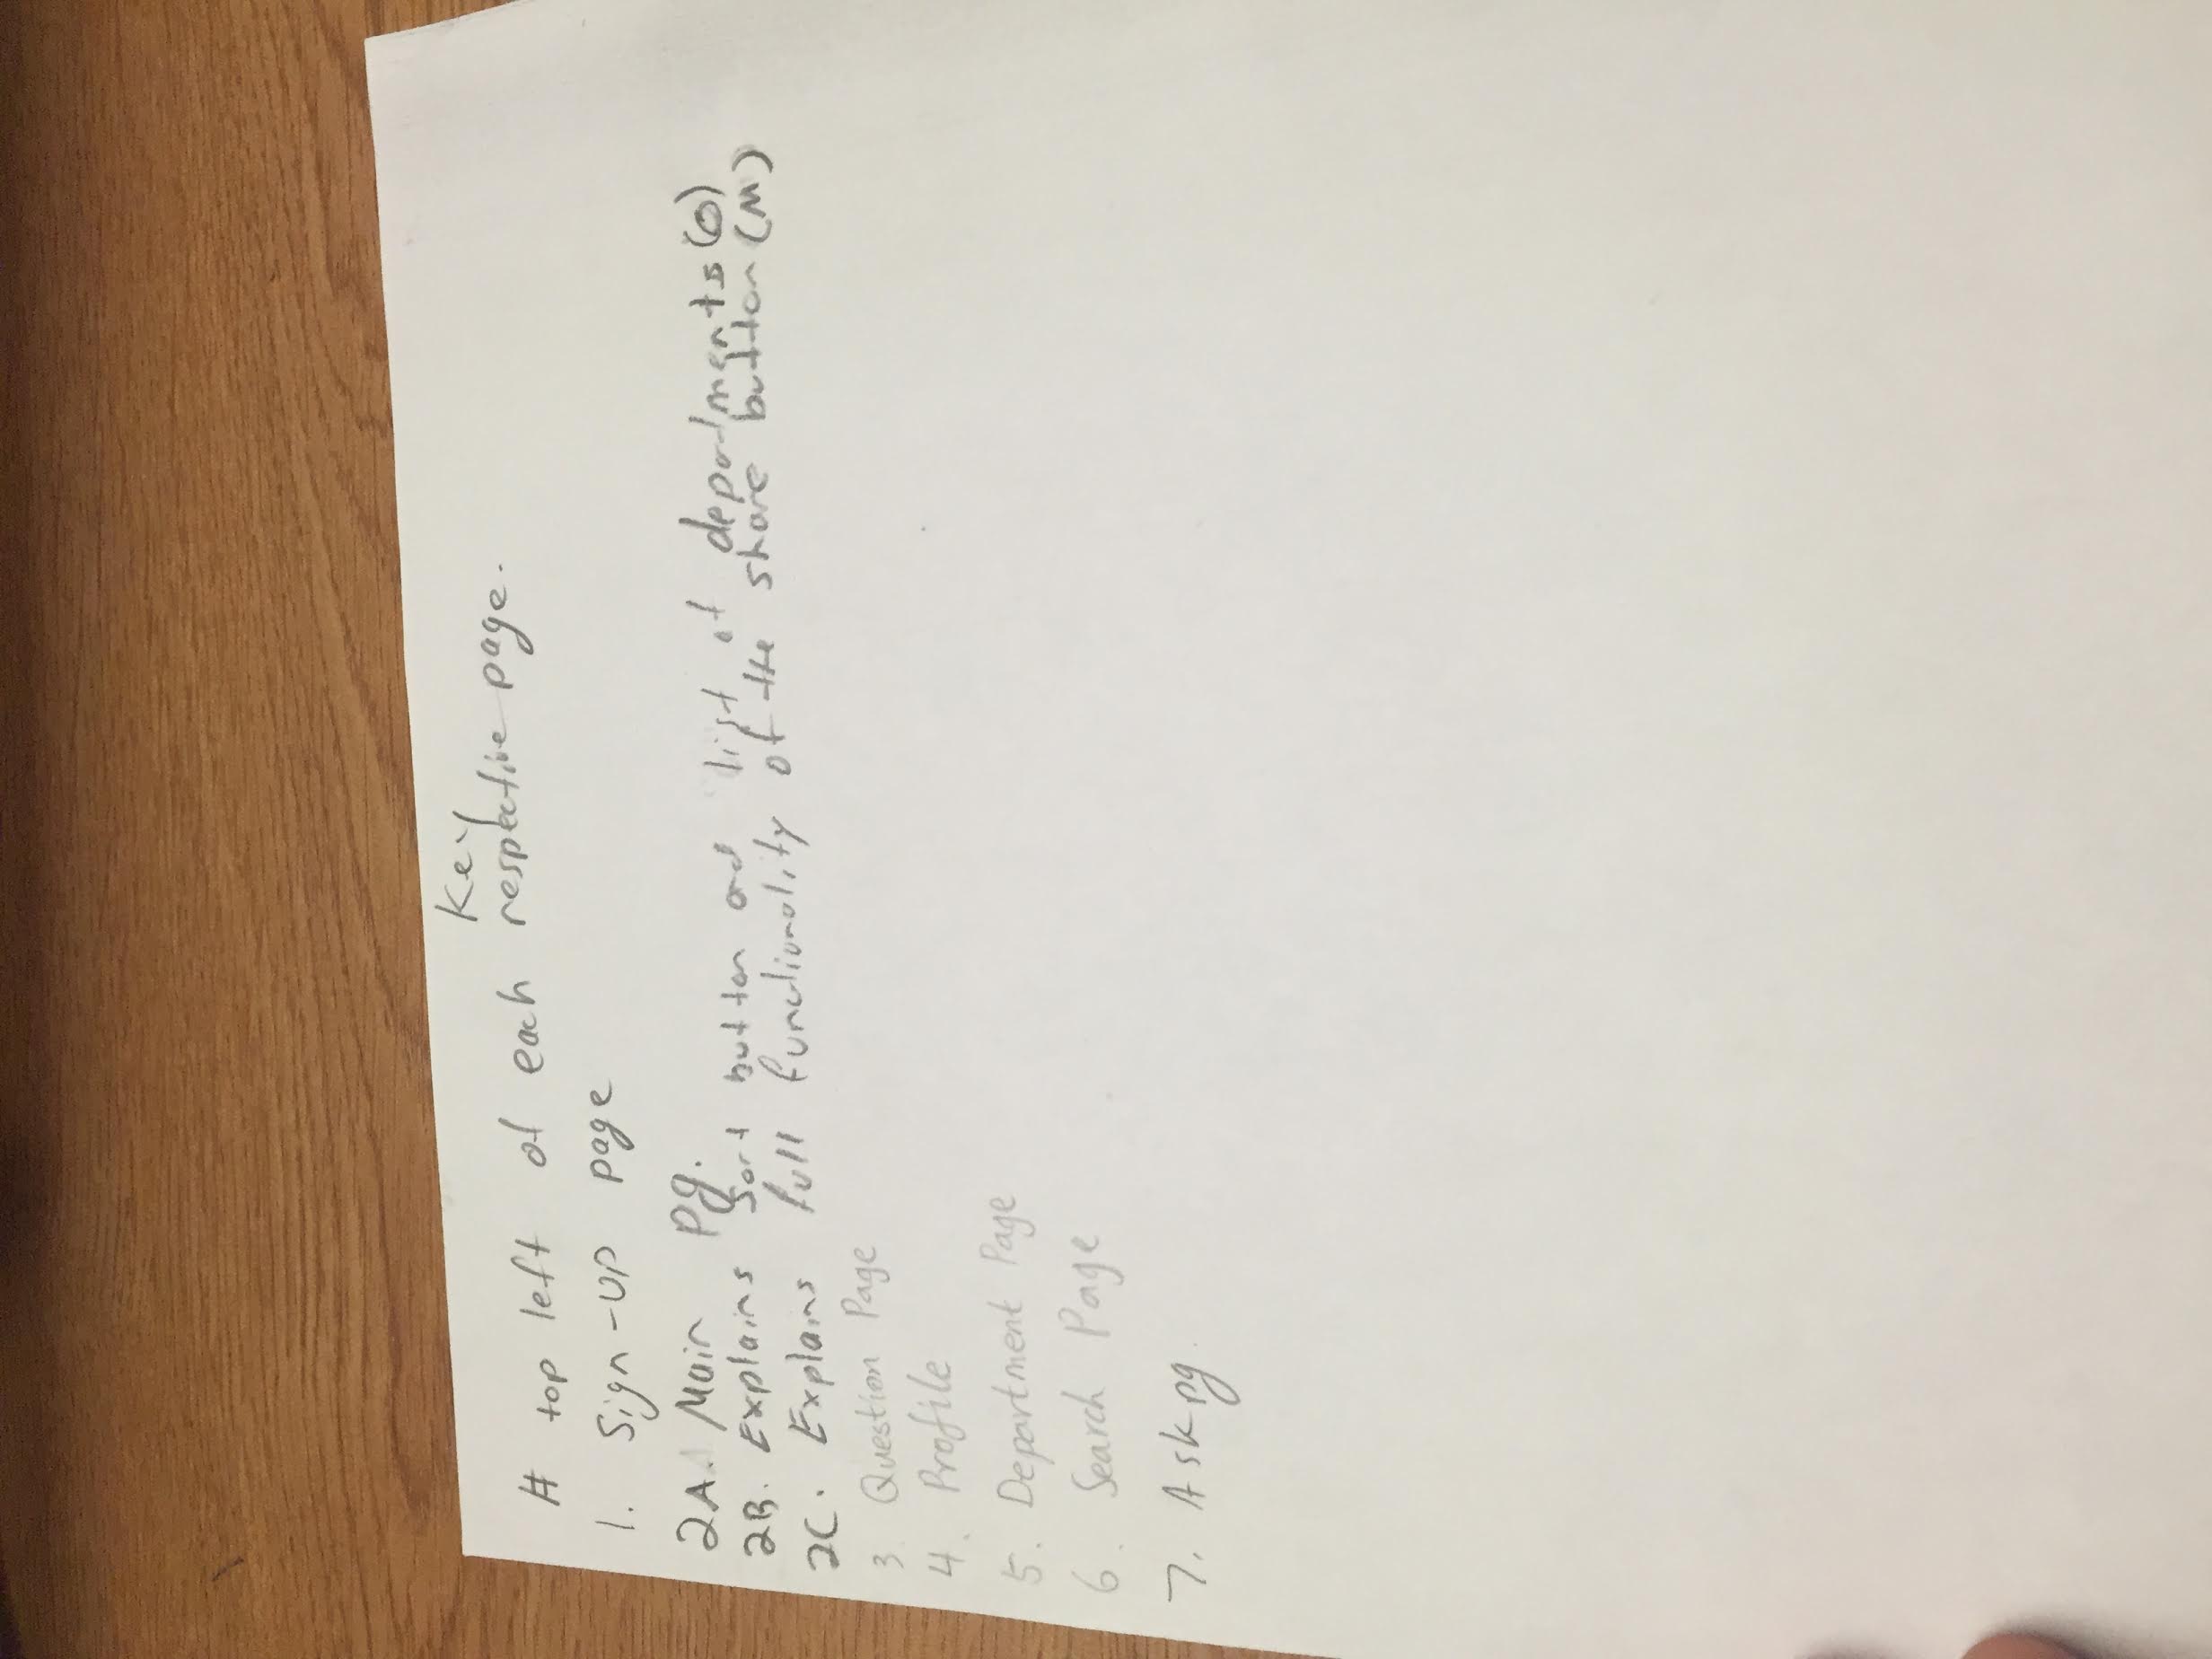 Key
At top left of each respective page.
1. Sign-up page
2A. Main pg.
2B. Explains sort button and list of departments (O)
2C. Explains full functionality of the share button (M)
3. Question Page
4. Profile
5. Department Page
6. Search Page
7. Ask pg.